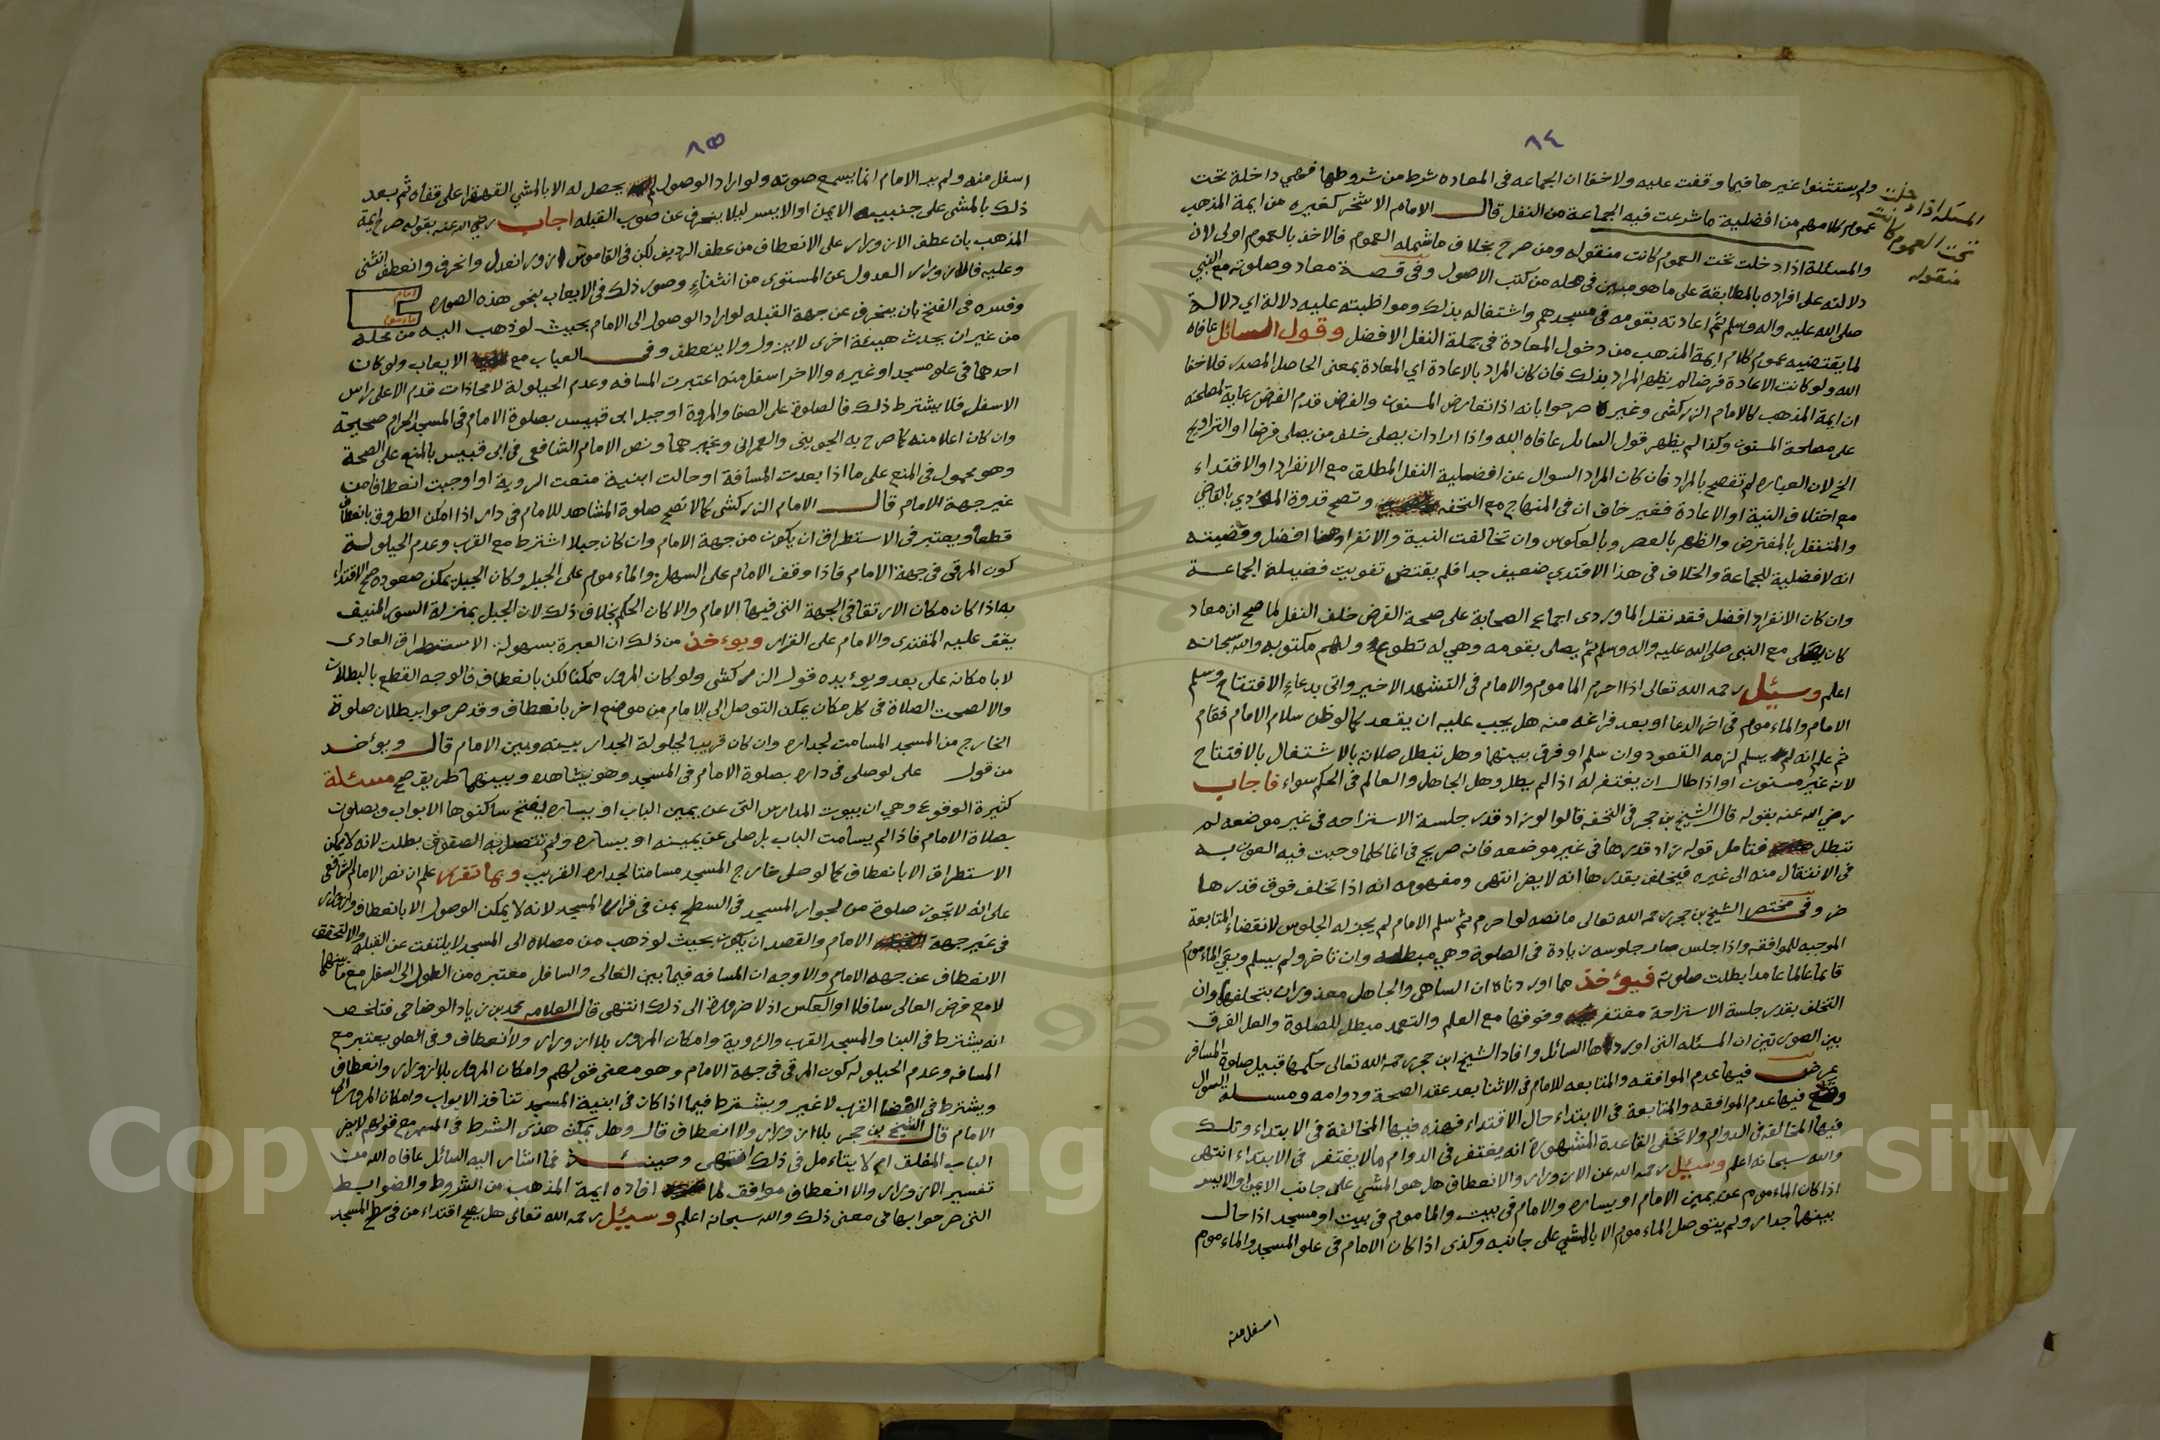 ٨٤
ولم يستثنوا غيرها فيما وقفت عليه ولا خفا ان الجماعه فى المعاده شرط من شروطها فهي داخلة تحت
عموم كلامهم من افضلية ما شرعت فيه الجماعة من النفل قال الامام الاشخر كغيره من ايمة المذهب
والمسئلة اذا دخلت تحت العموم كانت منقوله ومن صرح بخلاف ما شمله العموم فالاخذ بالعموم اولى لان
دلالته على افراده بالمطابقة على ما هو مبين فى محله من كتب الاصول وفى قصة معاد وصلوته مع النبي
صلى الله عليه واله وسلم ثم اعادته بقومه فى مسجدهم واشتغاله بذلك ومواظبته عليه دلالة اي دلالة
لما يقتضيه عموم كلام ايمة المذهب من دخول المعادة فى جملة النفل الافضل وقول السائل عافاه
الله ولو كانت الاعادة فرضا لم يظهر المراد بذلك فان كان المراد بالاعادة اي المعادة بمعنى الحاصل المصدر فلا خفا
ان ايمة المذهب كالامام الزركشى وغيره صرحوا بانه اذا تعارض المسنون والفرض قدم الفرض رعاية لمصلحته
على مصلحة المسنون وكذا لم يظهر قول السائل عافاه الله واذا اراد ان يصلى خلف من يصلى فرضا او التراويح
الخ لان العباره لم تفصح بالمراد فان كان المراد السوال عن افضلية النفل المطلق مع الانفراد او الاقتداء
مع اختلاف النية او الاعادة فغير خاف ان فى المنهاج مع التحفه وتصح قدوة المؤدي بالقاضي
والمتنفل بالمفترض والظهر بالعصر وبالعكوس وان تخالفت النية والانفراد هنا افضل وقضيته
انه لا فضلية للجماعة والخلاف فى هذا الاقتدي ضعيف جدا فلم يقتض تفويت فضيلة الجماعة
وان كان الانفراد افضل فقد نقل الماوردى اجماع الصحابة على صحة الفرض خلف النفل لما صح ان معاد
كان يصلى مع النبى صلى الله عليه واله وسلم ثم يصلى بقومه وهي له تطوع ولهم مكتوبه والله سبحانه
اعلم وسئل رحمه الله تعالى اذا احرم الماموم والامام فى التشهد الاخير واتى بدعاء الافتتاح وسلم
الامام والماءموم فى اخر الدعا او بعد فراغه منه هل يجب عليه ان يقعد كما لو ظن سلام الامام فقام
ثم علم انه لم يسلم لزمه القعود وان سلم او فرق بينهما وهل تبطل صلاته بالاشتغال بالافتتاح
لانه غير مسنون او اذا طال ان يغتفر له اذا لم يطل وهل الجاهل والعالم فى الحكم سواء فاجاب
رضي الله عنه بقوله قال الشيخ بن حجر فى التحفه قالوا لو زاد قدر جلسة الاستراحه فى غير موضعه لم
تبطل فتامل قوله زاد قدرها فى غير موضعه فانه صريح فى انما كلما وجبت فيه الفور به
فى الانتقال منه الى غيره فيتخلف بقدرها انه لا يضر انتهى ومفهومه انه اذا تخلف فوق قدرها
ضر وفى مختصر الشيخ بن حجر رحمه الله تعالى ما نصه لو احرم ثم سلم الامام لم يجز له الجلوس لانقضاء المتابعة
الموجبه للموافقه واذا جلس صار جلوسه زيادة فى الصلوة وهي مبطله وان تاخر ولم يسلم وبقي الماءموم
قائما عالما عامدا بطلت صلوته فيؤخذ مما اوردناه ان الساهى والجاهل معذوران بتخلفهما وان
التخلف بقدر جلسة الاستراحة مغتفر وفوقها مع العلم والتعمد مبطل للصلوة والعل الفرق
بين الصورتين ان المسئله التى اوردها السائل وافاد الشيخ ابن حجر رحمه الله تعالى حكمها قبيل صلوة المسافر
عرض فيها عدم الموافقه والمتابعه للامام فى الاثنا بعد عقد الصحة ودوامه ومسئلة السوال
وقع فيها عدم الموافقه والمتابعة فى الابتداء حال الاقتداء فهذه فيها المخالفة فى الابتداء وتلك
فيها المخالفه فى الدوام ولا تخفى القاعدة المشهورة انه يغتفر فى الدوام ما لا يغتفر فى الابتداء انتهى
والله سبحانه اعلم وسئل رحمه الله عن الازورار والانعطاف هل هو المشي على جانب الايمن او الايسر
اذا كان الماءموم عن يمين الامام او يساره والامام فى بيت والماموم فى بيت او مسجد اذا حال
بينهما جدار ولم يتوصل الماءموم الا بالمشي على جانبه وكذى اذا كان الامام فى علو المسجد والماءموم
اسفل منه
المسئلة اذا دخلت
تحت العموم كانت
منقوله
٨٥
اسفل منه ولم ير الامام انما يسمع صوته ولو اراد الوصول لم يحصل له الا بالمشي القهقرا على قفاه ثم بعد
ذلك بالمشى على جنبيه الايمن او الايسر ليلا ينحرف عن صوب القبله اجاب رضي الله عنه بقوله صرح ايمة
المذهب بان عطف الازورار على الانعطاف من عطف الرديف لكن فى القاموس ازور انعدل وانحرف وانعطف انثنى
وعليه فالازورار العدول عن المستوى من انثناء وصور ذلك فى الايعاب بنحو هذه الصوره
امام
ماموم
وفسره فى الفتح بان ينحرف عن جهة القبله لو اراد الوصول الى الامام بحيث لو ذهب اليه من محله
من غير ان يحدث هيئة اخرى لا يزول ولا ينعطف وفى العباب مع الايعاب ولو كان
احدهما فى علو مسجد او غيره والاخر اسفل منه اعتبرت المسافه وعدم الحيلولة لا محاذات قدم الاعلى راس
الاسفل فلا يشترط ذلك فالصلوة على الصفا والمروة او جبل ابى قبيس بصلوة الامام فى المسجد الحرام صحيحة
وان كان اعلا منه كما صرح به الجوينى والعمرانى وغيرهما ونص الامام الشافعى فى ابى قبيس بالمنع على الصحة
وهو محمول فى المنع على ما اذا بعدت المسافة او حالت ابنية منعت الروية او اوجبت انعطافا من
غير جهة الامام قال الامام الزركشى كما لا تصح صلوة المشاهد للامام فى دار اذا امكن الطروق بانعطاف
قطعا ويعتبر فى الاستطراق ان يكون من جهة الامام وان كان جبلا اشترط مع القرب وعدم الحيلولة
كون المرقى فى جهة الامام فاذا وقف الامام على السهل والماءموم على الجبل وكان الجبل يمكن صعوده صح الاقتداء
به اذا كان مكان الارتقا فى الجهة التى فيها الامام والا كان الحكم بخلاف ذلك لان الجبل بمنزلة السور المنيف
يقف عليه المقتدى والامام على القرار ويوءخذ من ذلك ان العبرة بسهولة الاستطراق العادى
لا بامكانه على بعد ويوءيده قول الزركشى ولو كان المرور ممكنا لكن بانعطاف فالوجه القطع بالبطلان
والا لصحت الصلاة فى كل مكان يمكن التوصل الى الامام من موضع اخر بانعطاف وقد صرحوا ببطلان صلوة
الخارج من المسجد المسامت لجداره وان كان قريبا لحيلولة الجدار بينه وبين الامام قال ويوءخد
من قول على لو صلى فى داره بصلوة الامام فى المسجد وهو يشاهده وبينهما طريق صح مسئلة
كثيرة الوقوع وهي ان بيوت المدارس التى عن يمين الباب او يساره يفتح ساكنوها الابواب ويصلون
بصلاة الامام فاذا لم يسامت الباب بل صلى عن يمينه او يساره ولم تتصل به الصفوف بطلت لانه لا يمكن
الاستطراق الا بانعطاف كما لو صلى خارج المسجد مسامتا لجداره القريب وبما تقرر علم ان نص الامام الشافعى
على انه لا تجوز صلوة من لجوار المسجد فى السطح بمن فى قراره المسجد لانه لا يمكن الوصول الا بانعطاف وازورار
فى غير جهة الامام والقصد ان يكون بحيث لو ذهب من مصلاه الى المسجد لا يلتفت عن القبله والا لتحقق
الانعطاف عن جهه الامام والاوجه ان المسافه فيما بين العالى والسافل معتبره من الطول الى السفل مع ما بينهما
لا مع فرض العالى سافلا او العكس اذ لا ضرورة الى ذلك انتهى قال العلامه محمد بن زياد الوضاحى فتلخص
انه يشترط فى البنا والمسجد القرب والروية وامكان المرور بلا ازورار ولا انعطاف وفى العلو يعتبر مع
المسافه وعدم الحيلوله كون المرقى فى جهة الامام وهو معنى قولهم وامكان المرور بلا ازورار وانعطاف
ويشترط فى الفضا القرب لا غير ويشترط فيما اذا كان فى ابنية المسجد تنافذ الابواب وامكان المرور الى
الامام قال الشيخ بن حجر بلا ازورار ولا انعطاف قال وهل يمكن هذى الشرط فى المسمر مع قولهم لا يضر
الباب المغلق ام لا يتاءمل فى ذلك انتهى وحينئذ فما اشار اليه السائل عافاه الله من
تفسير الازورار والانعطاف موافق لما افاده ايمة المذهب من الشروط والضوابط
التى صرحوا بها فى معنى ذلك والله سبحانه اعلم وسئل رحمه الله تعالى هل يصح اقتداء من فى سطح المسجد
Copyright © King Saud University